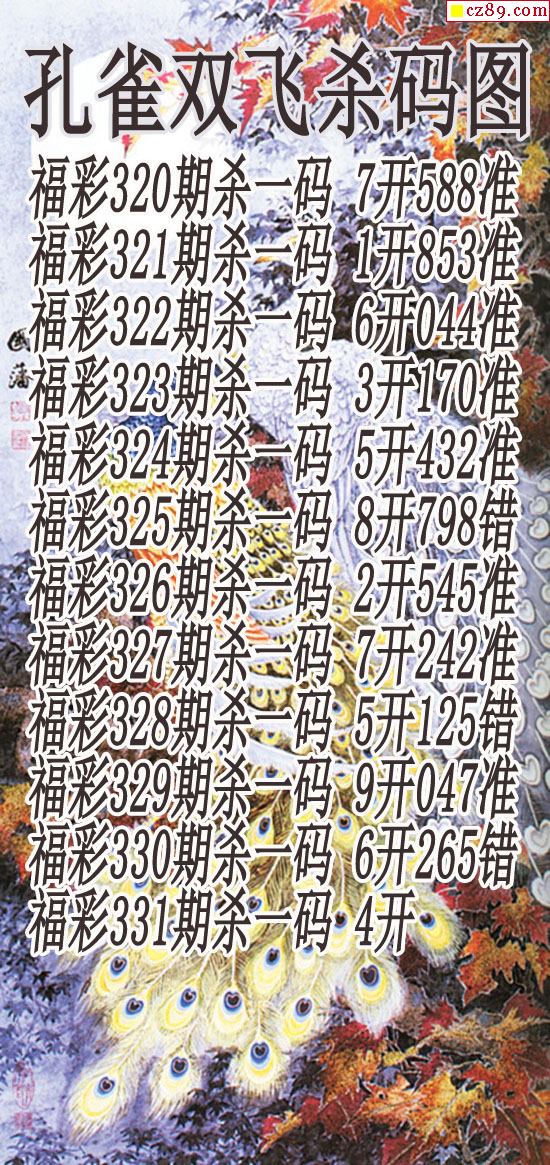 cz89.com
孔雀双飞杀码图
福彩320期杀一码 7开588准
福彩321期杀一码 1开853准
福彩322期杀一码 6开044准
福彩323期杀一码 3开170准
福彩324期杀一码 5开432准
福彩325期杀一码 8开798错
福彩326期杀一码 2开545准
福彩327期杀一码 7开242准
福彩328期杀一码 5开125错
福彩329期杀一码 9开047准
福彩330期杀一码 6开265错
福彩331期杀一码 4开